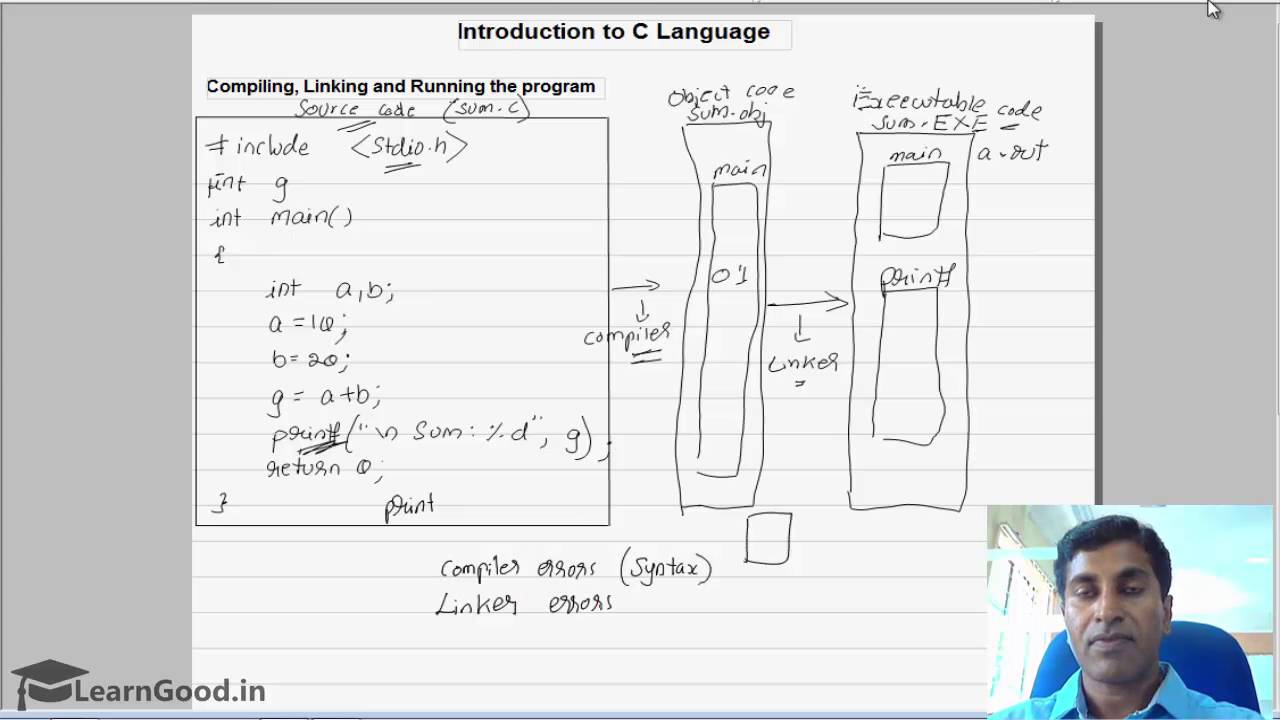 Introduction to C Language
Compiling, Linking and Running the program
Source code (sum.c)
# include <stdio.h>
int g
int main()
{
int a,b;
a=10;
b=20;
g= a+b;
printf("\n Sum: %d", g);
return 0;
}
print
compiler
Object code
sum.obj
main
01
Linker
Executable code
sum.EXE
a.out
main
printf
Compiler errors (Syntax)
Linker errors
LearnGood.in